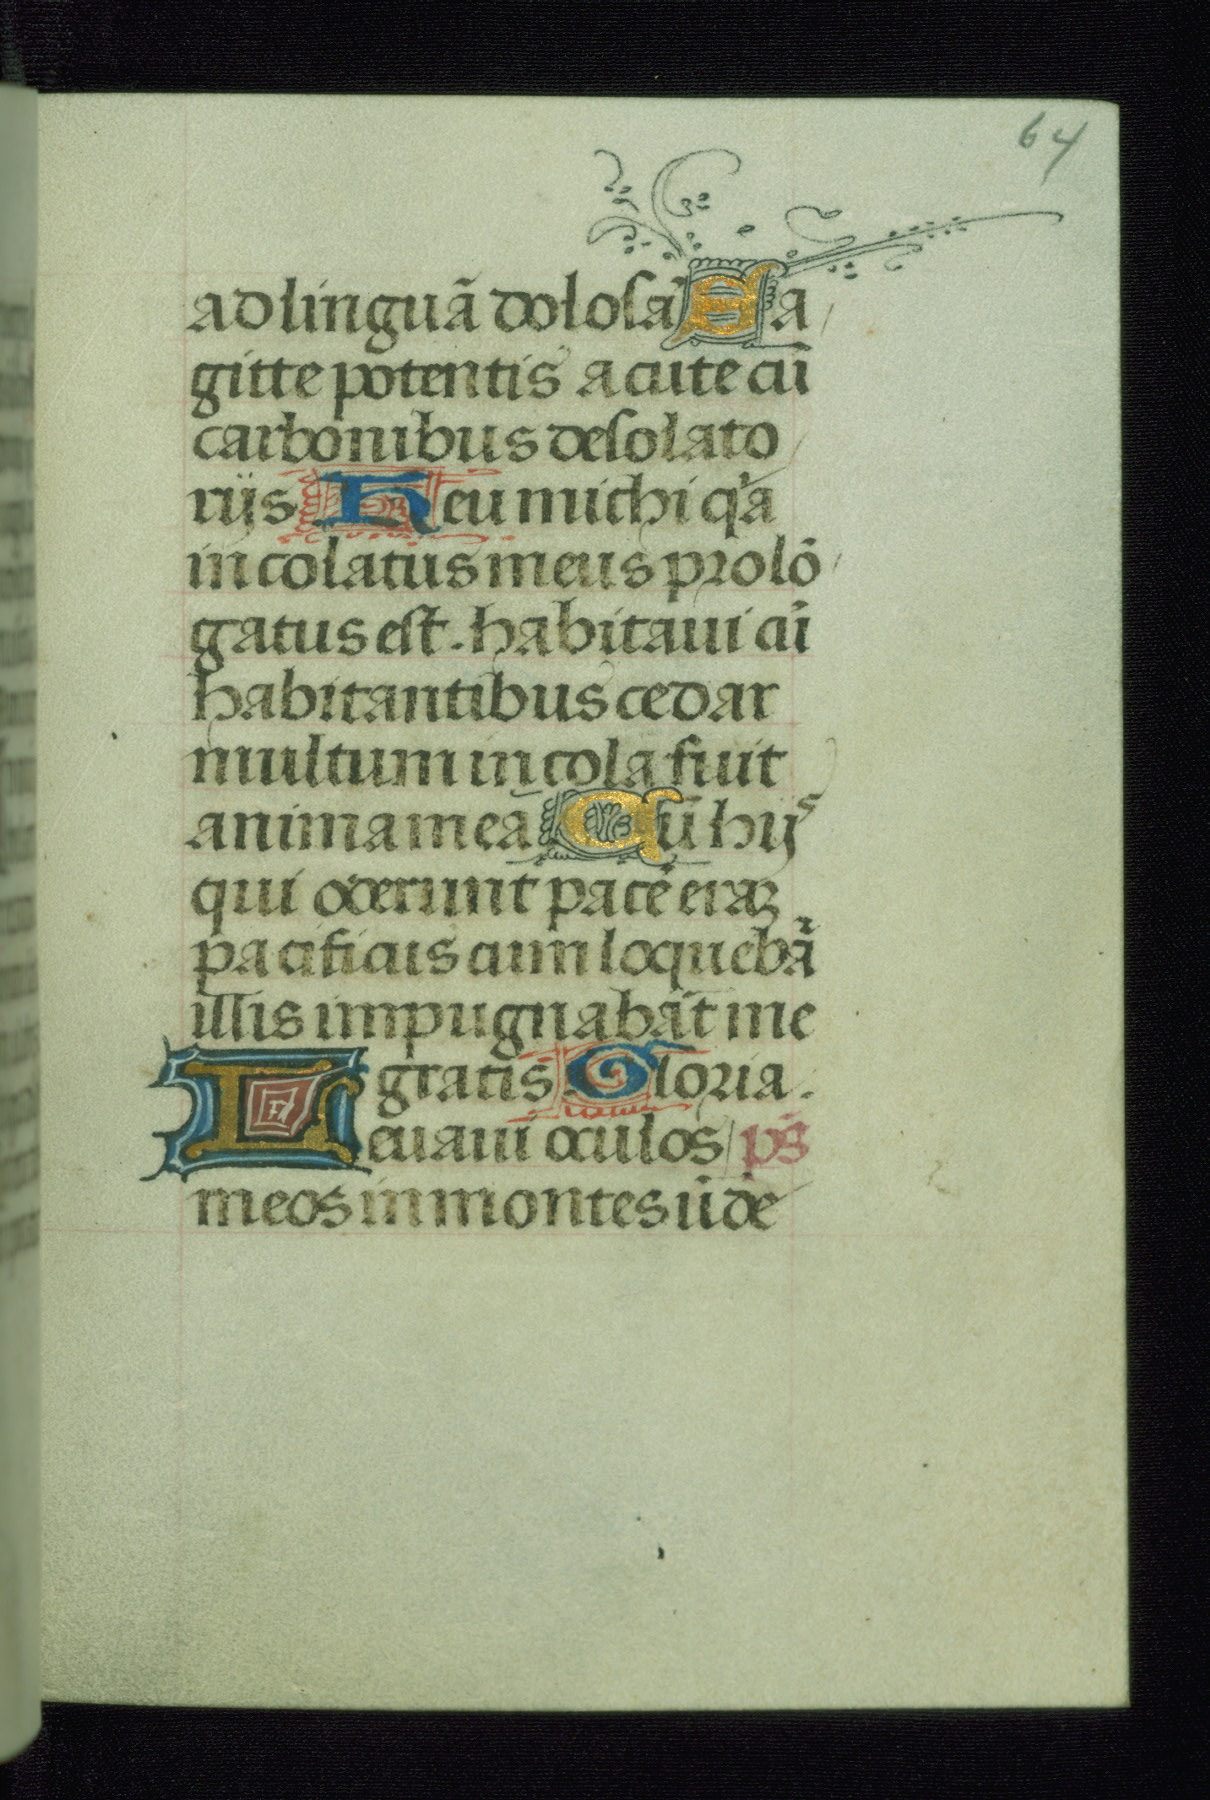 64
ad linguā dolosā Sa
gitte potentis acute cū
carbonibus desolato
rijs Heu michi qͥa
incolatus meus prolō
gatus est. habitaui cū
habitantibus cedar
multum incola fuit
anima mea Cū hijs
qui oderunt pacē eraꝫ
pacificus cum loquebā
illis impugnabāt me
gratis Gloria.
Leuaui oculos ps̄
meos in montes ūde